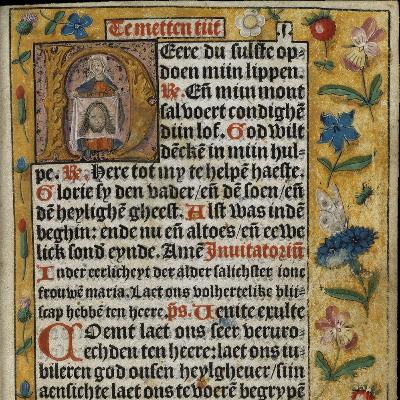 Te metten tiit
Heere du sulste op-
doen miin lippen.
R̄. Eñ miin mont
sal voert condighē
diin lof. God wilt
dēckē in miin hul-
pe. R̄. Here tot my te helpē haeste.
Glorie sy den vader/eñ dē soen/eñ
dē heylighē gheest. Alst was indē
beghin: ende nu eñ altoes/eñ ee we
lick sond eynde. Amē Inuitatoriū
Inder eerlicheyt der alder salichster ionc
frouwē maria. Laet ons volhertelike blij-
scap hebbē ten heere. ps. Uenite exulte
Coemt laet ons seer veruro-
echden ten heere: laet ons iu-
bileren god onsen heylgheuer/siin
aensichte laet ons te voerē begrypē